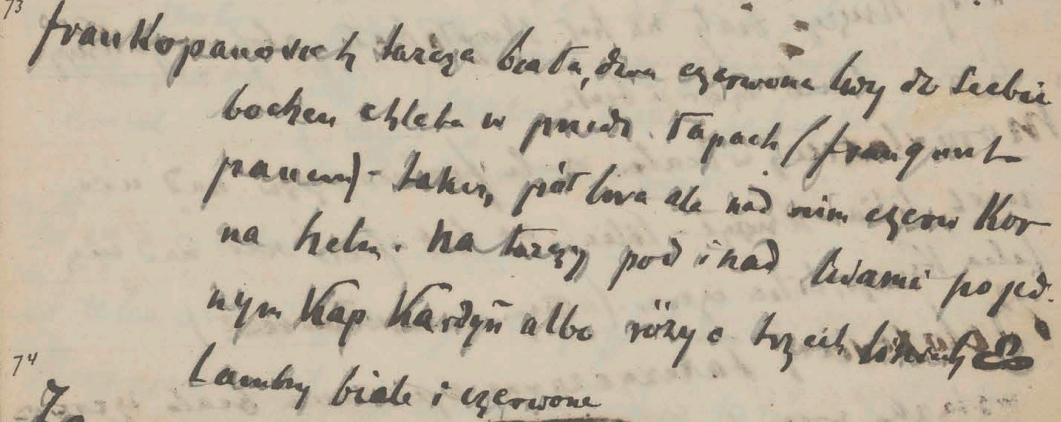 73
Frankopanowich tarcza biała, dwa czerwone lwy do siebie
bochen chleba w przedn. łapach (frangunt
panem) - takiż pół lwa ale nad nim czerw kor
na hełm. Na tarczy pod i nad lwami po jed.
nym Kap Kardyń albo róży o trzech
74
Lambry białe i czerwone